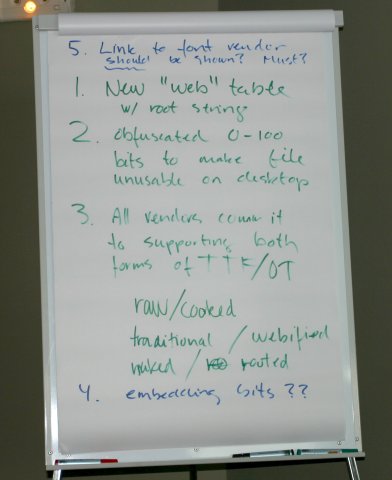 5. Link to font vendor
should be shown? Must?
1. New "web" table
w/ root string
2. obfuscated 0-100
bits to make file
unusable on desktop
3. All venders commit
to supporting both
forms of TTF/OT
raw/cooked
traditional / webified
naked / rooted
4. embedding bits ??